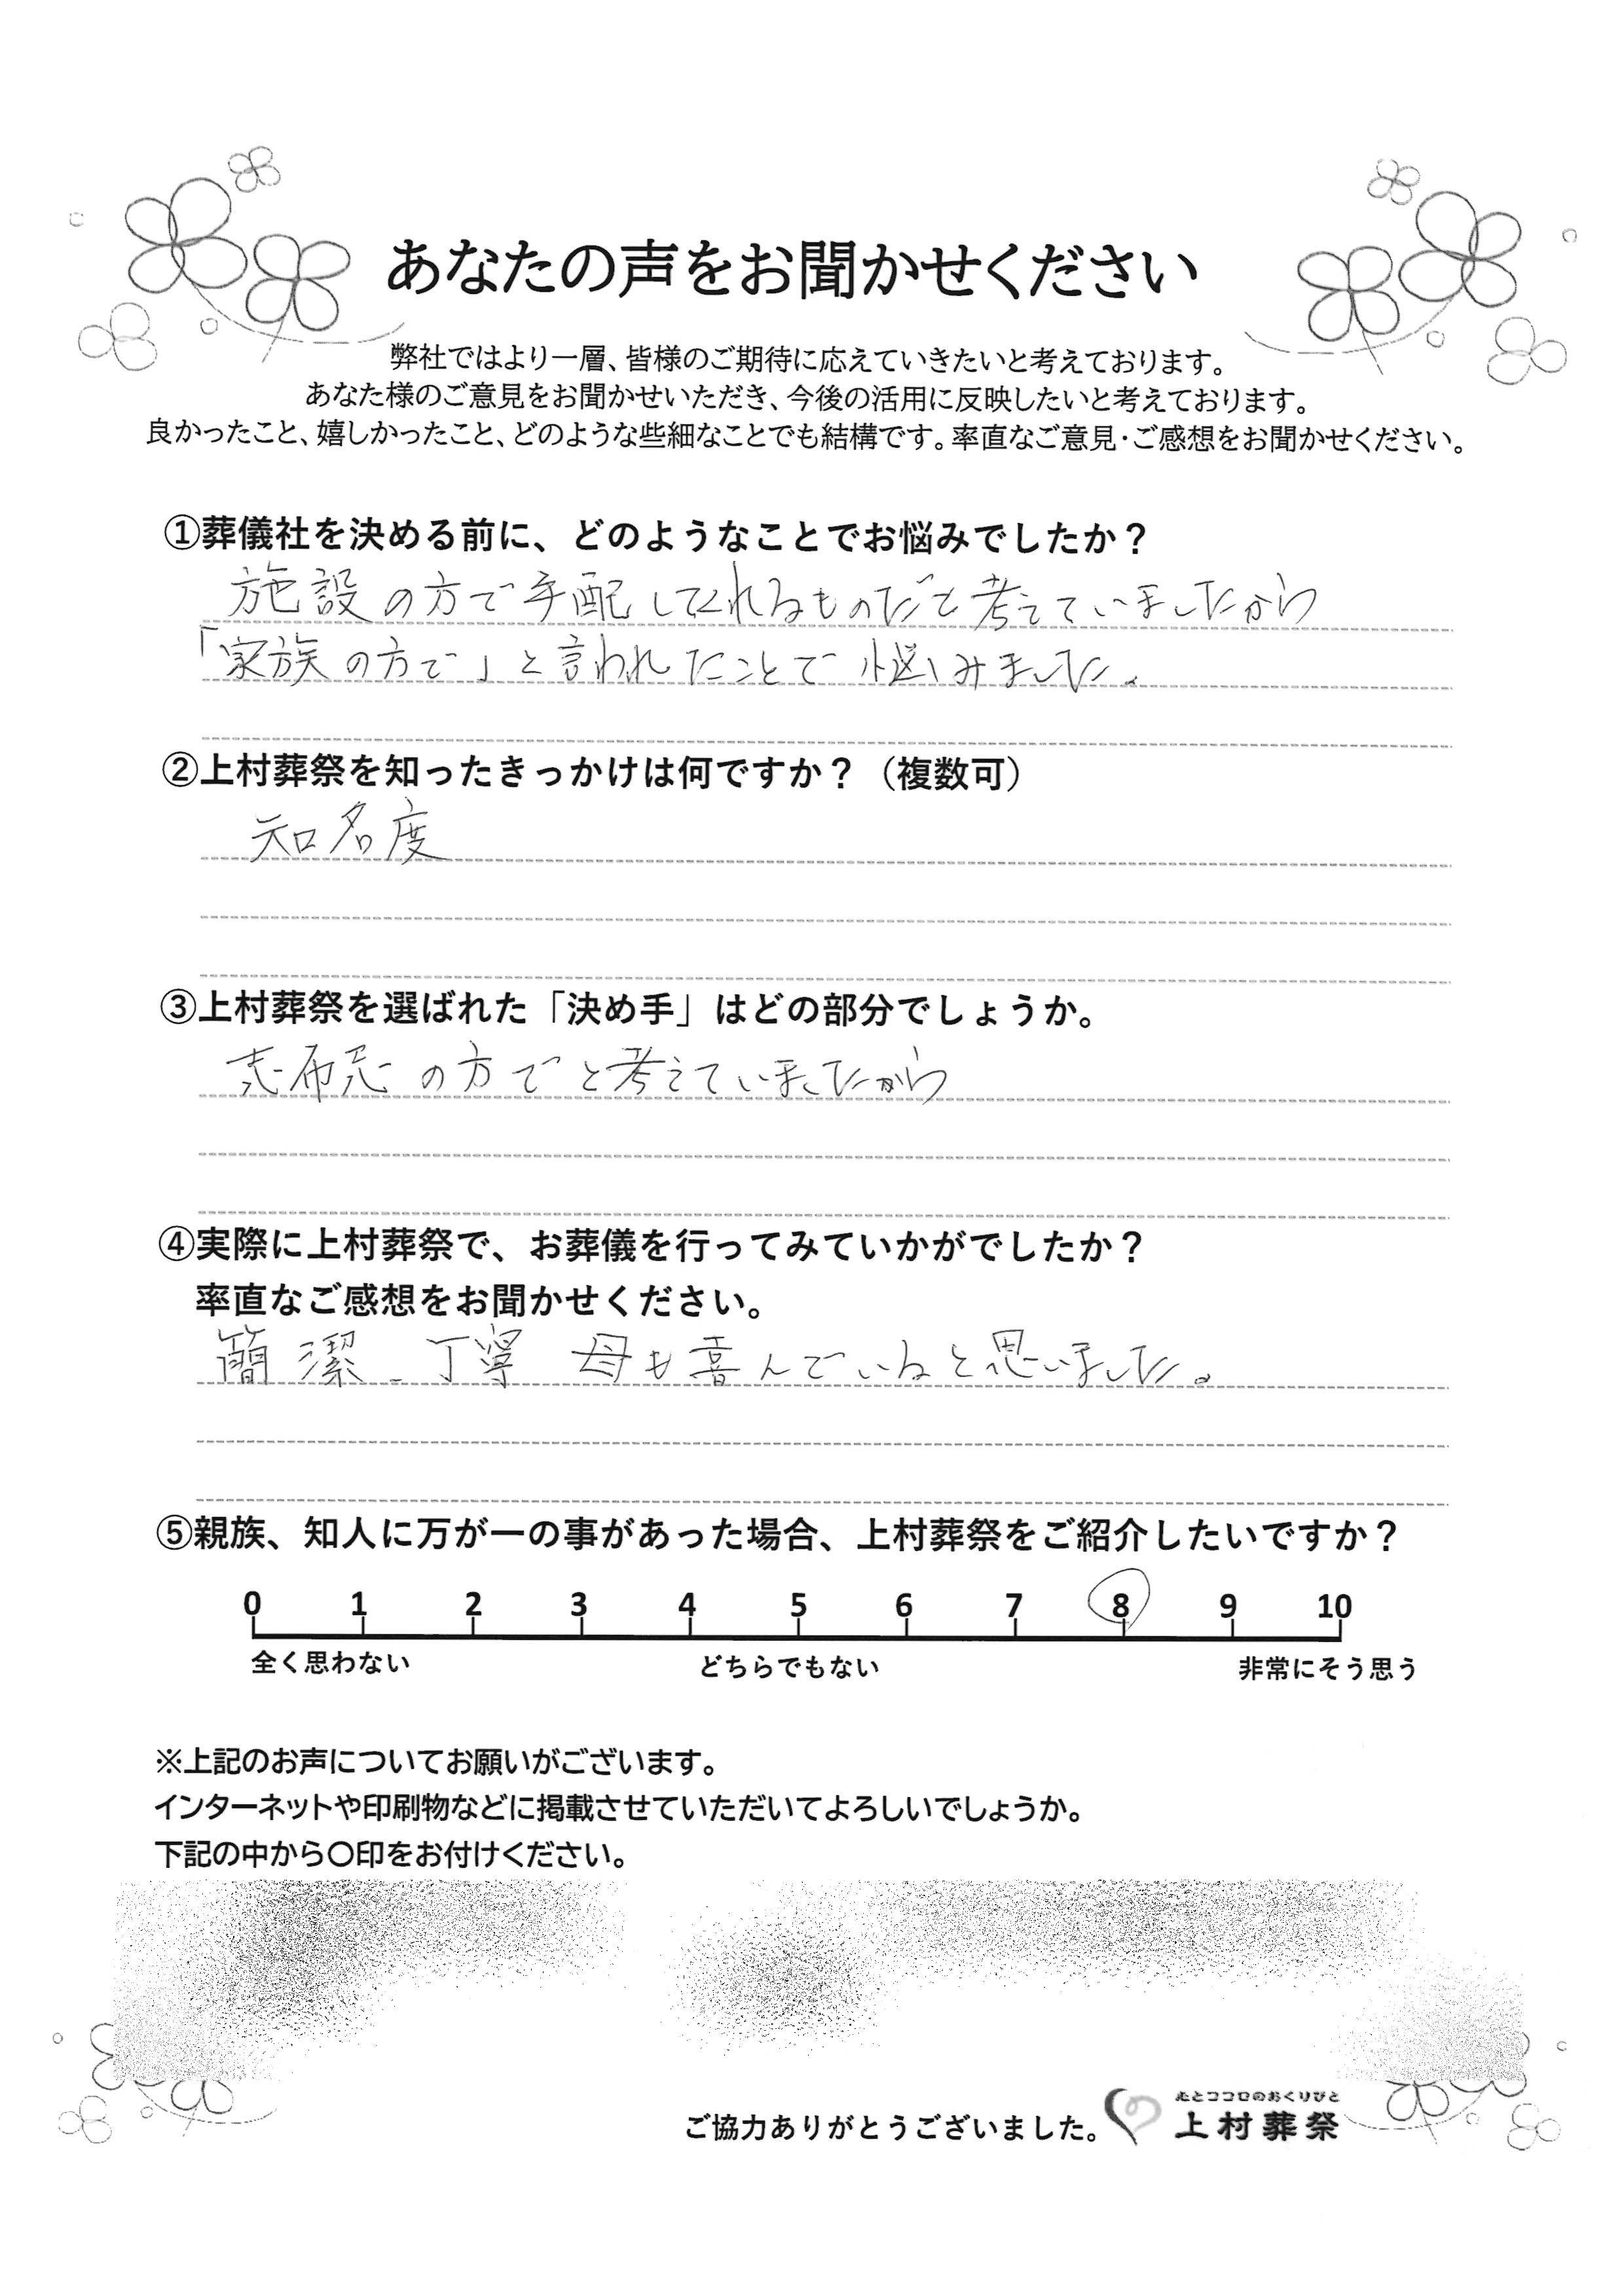 あなたの声をお聞かせください
弊社ではより一層、皆様のご期待に応えていきたいと考えております。
あなた様のご意見をお聞かせいただき、今後の活用に反映したいと考えております。
良かったこと、嬉しかったこと、どのような些細なことでも結構です。率直なご意見・ご感想をお聞かせください。
①葬儀社を決める前に、どのようなことでお悩みでしたか？
施設の方で手配してくれるものだと考えていましたから
「家族の方で」と言われたことで悩みました。
②上村葬祭を知ったきっかけは何ですか？（複数可）
知名度
③上村葬祭を選ばれた「決め手」はどの部分でしょうか。
志布志の方でと考えていましたから
④実際に上村葬祭で、お葬儀を行ってみていかがでしたか？
率直なご感想をお聞かせください。
簡潔、丁寧 母も喜んでいると思いました。
⑤親族、知人に万が一の事があった場合、上村葬祭をご紹介したいですか？
0 1 2 3 4 5 6 7 8 9 10
全く思わない どちらでもない 非常にそう思う
※上記のお声についてお願いがございます。
インターネットや印刷物などに掲載させていただいてよろしいでしょうか。
下記の中から〇印をお付けください。
心とココロのおくりびと
ご協力ありがとうございました。 上村葬祭